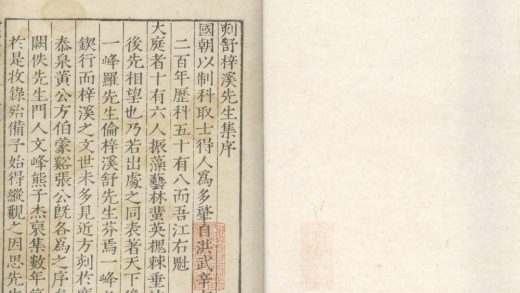 刻舒梓溪先生集序
國朝以制科取士得人爲多肇自洪武辛
二百年歷科五十有八而吾江右魁
大庭者十有六人振藻藝林蜚英槐棘垂
後先相望也乃若出處之同表著天下後
一峰羅先生倫梓溪舒先生芬焉一峰
鍥行而梓溪之文世未多見近方刻於
泰泉黃公方伯蒙谿張公旣各爲之序
闕佚先生門人文峰熊子杰裒集數年
於是收錄殆備予始得縱觀之因思先生